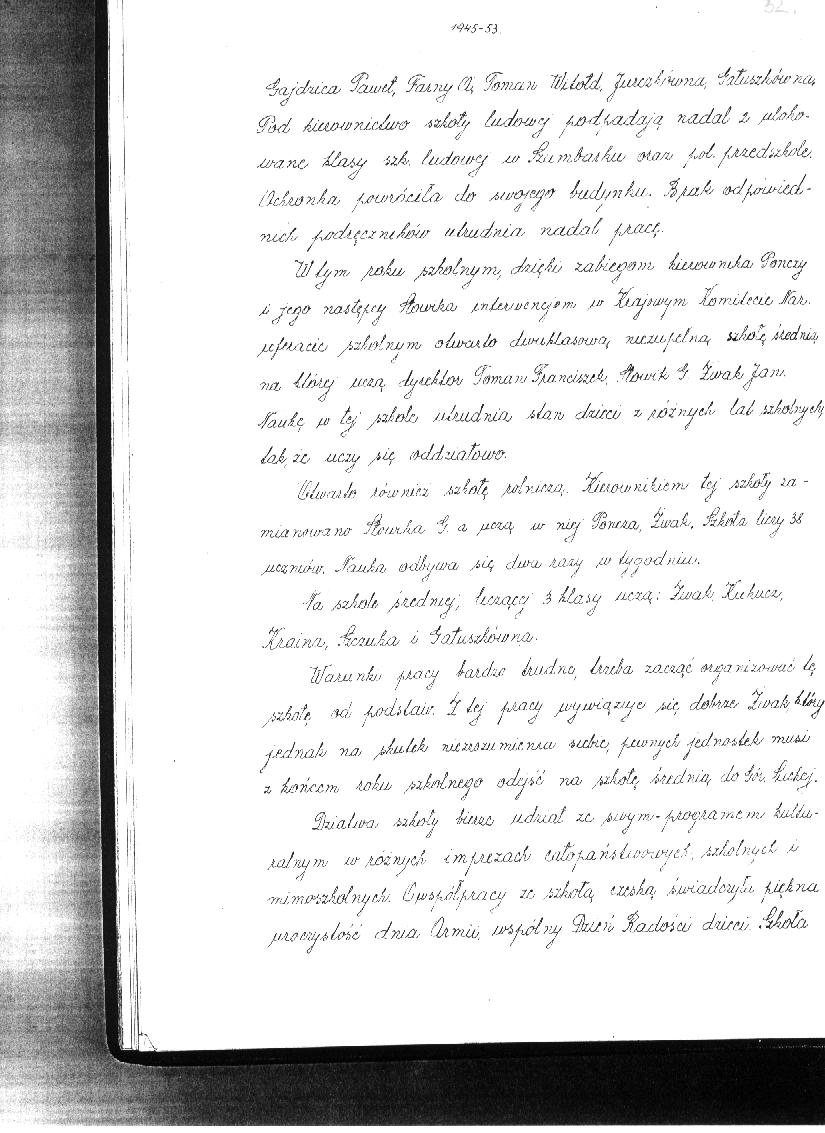 52.
1945-53.
Gajdzica Paweł, Farny O, Toman Witold, Jurczkówna, Gałuszkówna,
Pod kierownictwo szkoły ludowej podpadają nadal 2 uloko-
wane klasy szk. ludowej w Szumbarku oraz pol. przedszkole.
Ochronka powróciła do swojego budynku. Brak odpowied-
nich podręczników utrudnia nadal pracę.
W tym roku szkolnym, dzięki zabiegom kierownika Ponczy
i jego następcy Słowika interwencjom w Krajowym Komitecie Nar.
referacie szkolnym otwarto dwuklasową niezupełną szkołę średnią
na której uczą dyrektor Toman Franciszek, Słowik G. Żwak Jan.
Naukę w tej szkole utrudnia stan dzieci z różnych lat szkolnych,
tak, że uczy się oddziałowo.
Otwarto również szkołę rolniczą. Kierownikiem tej szkoły za-
mianowano Słowika G. a uczą w niej Poncza, Żwak. Szkoła liczy 38
uczniów. Nauka odbywa się dwa razy w tygodniu.
Na szkole średniej, liczącej 3 klasy uczą: Żwak, Kukucz,
Kraina, Szczuka i Gałuszkówna.
Warunki pracy bardzo trudne, trzeba zacząć organizować tę
szkołę od podstaw. Z tej pracy wywiązuje się dobrze Żwak który
jednak na skutek niezrozumienia siebie, pewnych jednostek musi
z końcem roku szkolnego odejść na szkołę średnią do Gór. Suchej.
Dziatwa szkoły bierze udział ze swym-programem kultu-
ralnym w różnych imprezach całopaństwowych, szkolnych i
mimoszkolnych. O współpracy ze szkołą czeską świadczyła piękna
uroczystość dnia Armii, wspólny Dzień Radości dzieci. Szkoła